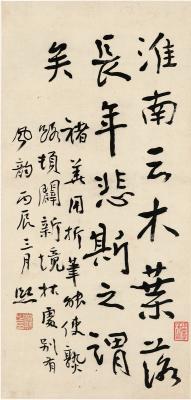 淮南云木葉落
長年悲斯之謂
矣
褚美用折筆獨使熟
路頓闢新境林處別有
風韵丙辰三月熙